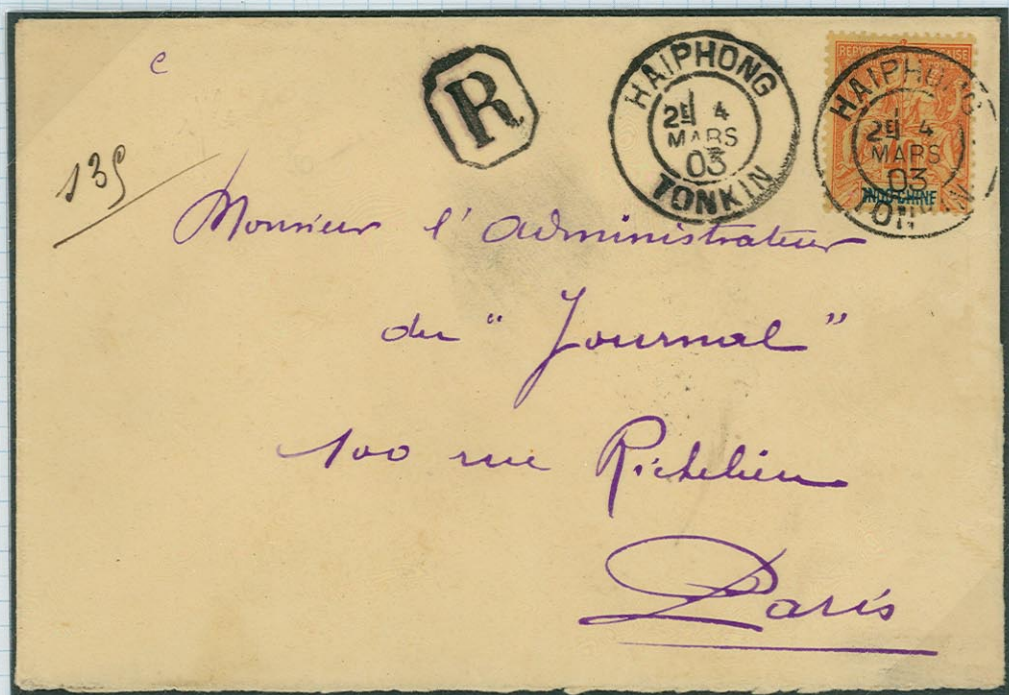 e
R
HAIPHONG
2E 4
MARS
03
TONKIN
RÉPUBLIQUE FRANÇAISE
HAIPHONG
2E 4
MARS
03
TONKIN
INDO-CHINE
139
Monsieur l'administrateur
du "Journal"
100 rue Richelieu
Paris